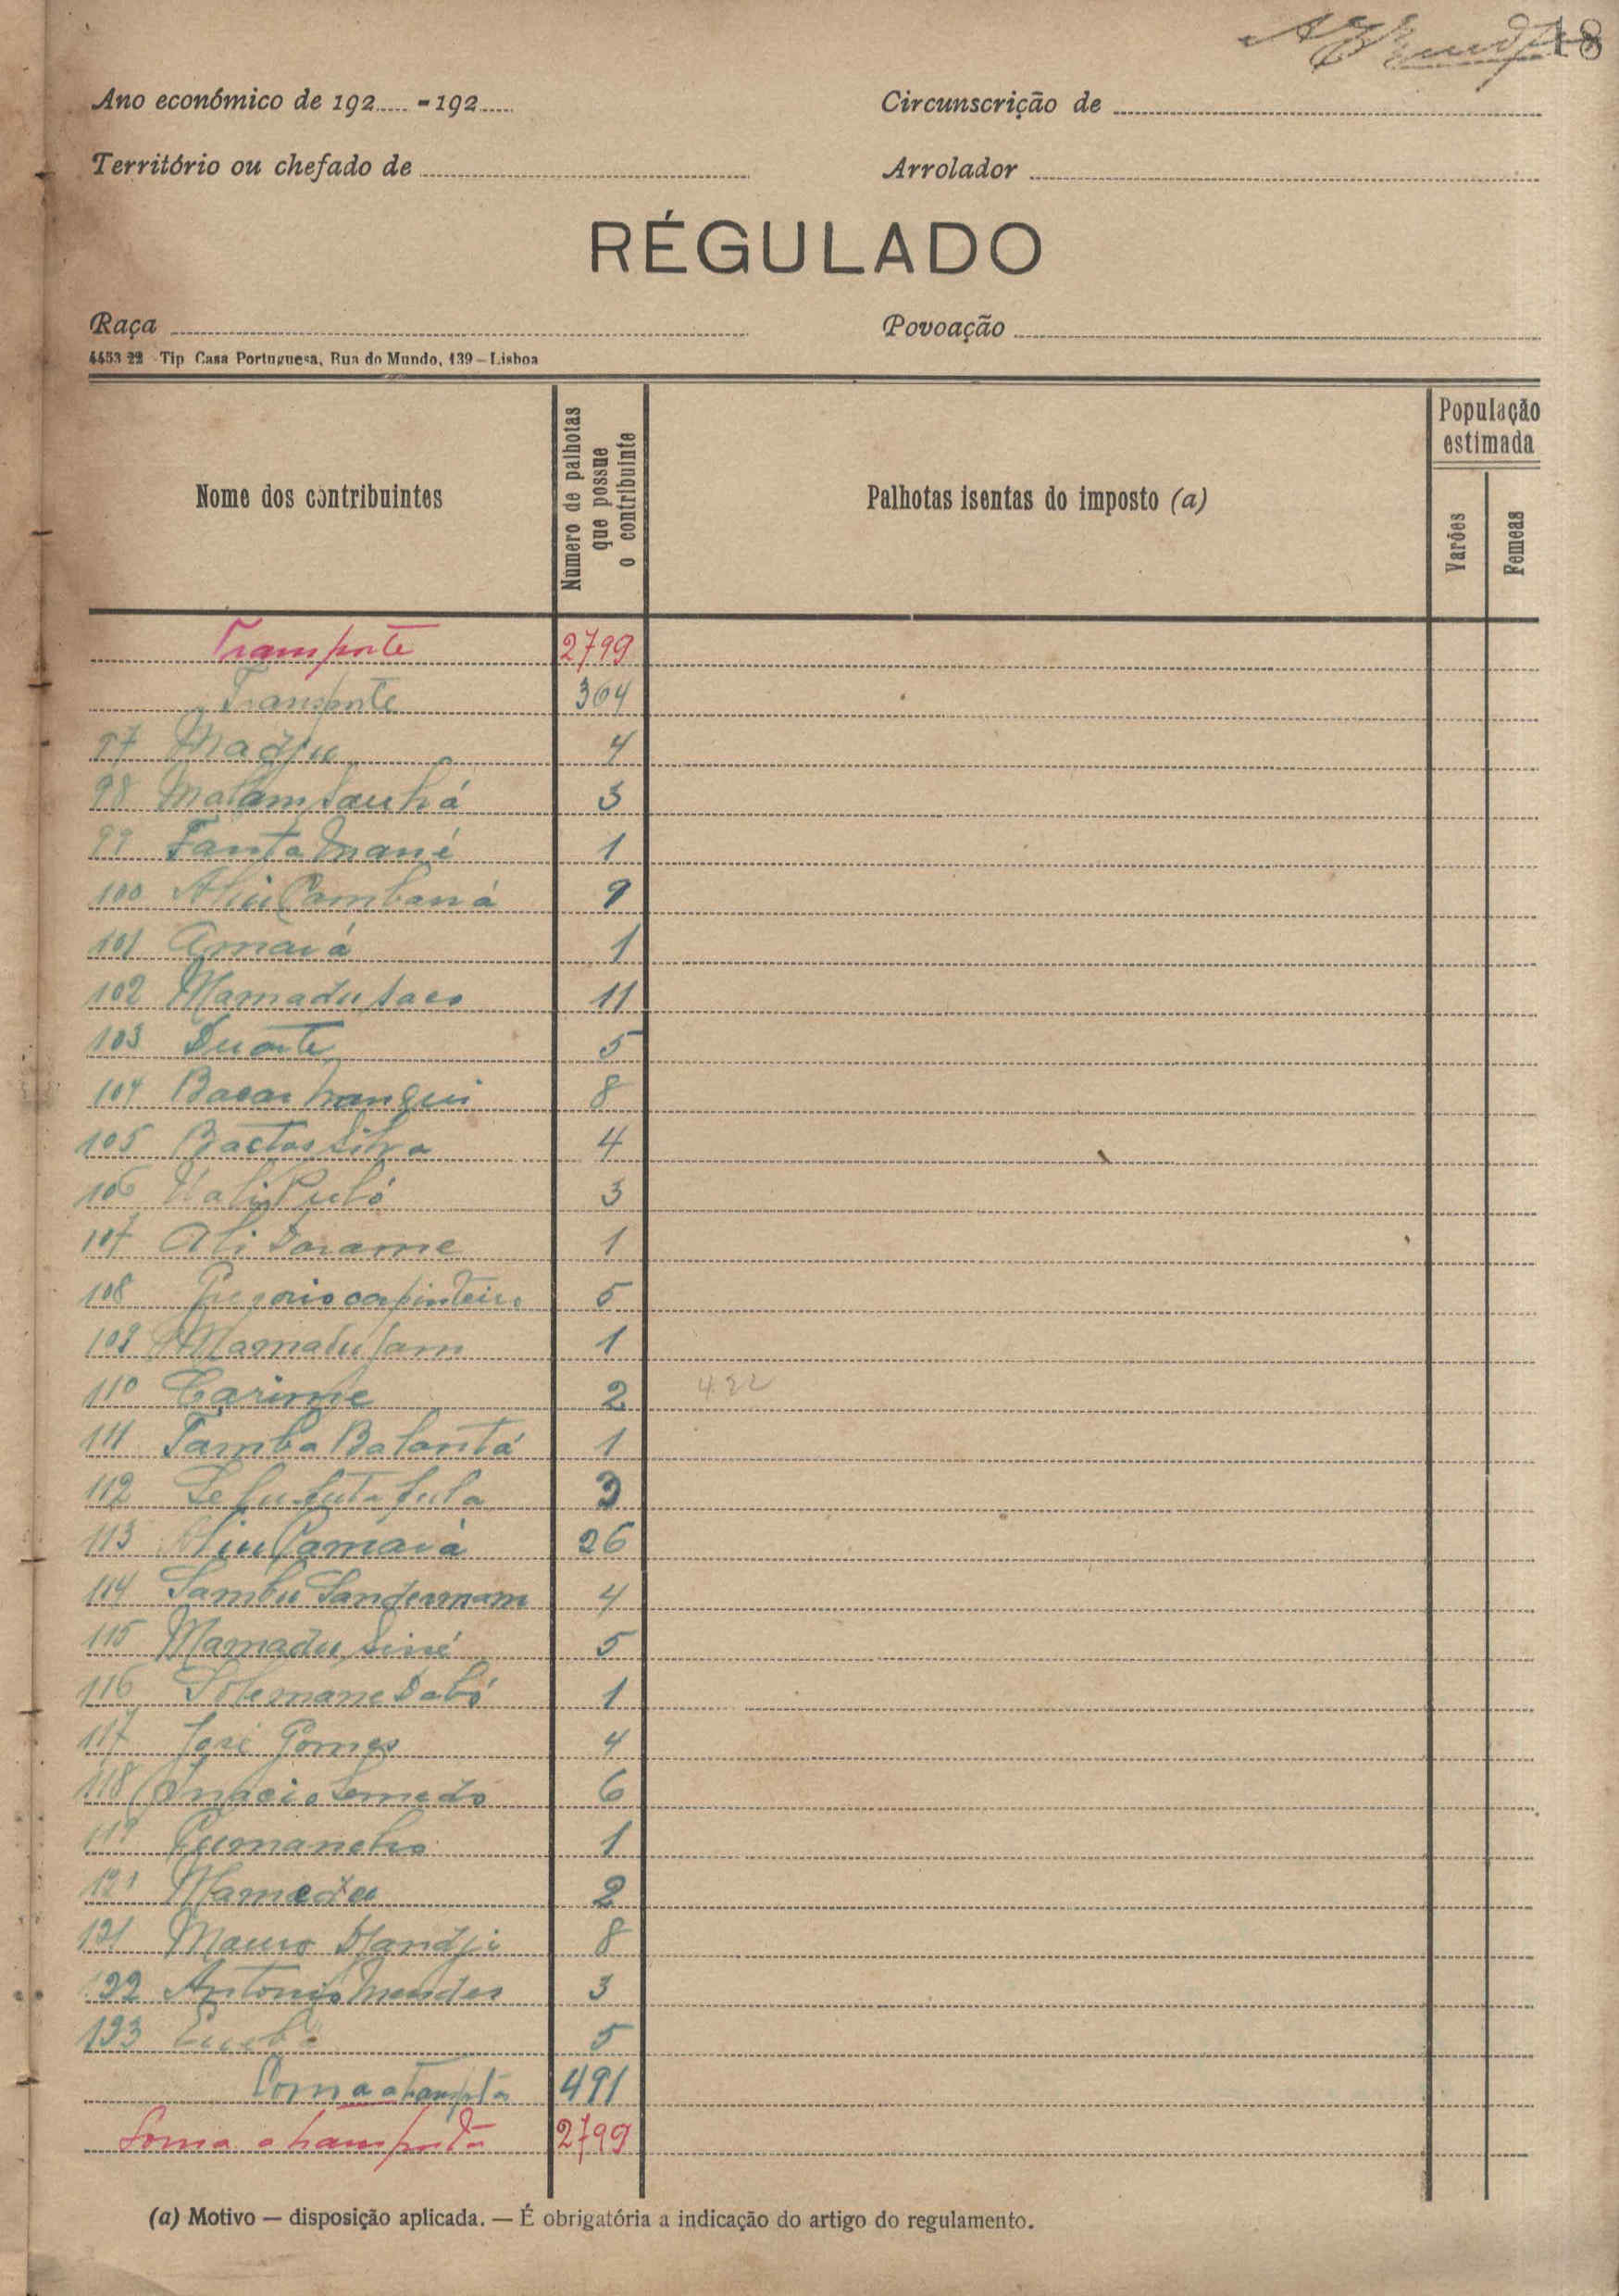 18
Ano económico de 192..... - 192.....
Circunscrição de
Território ou chefado de
Arrolador
RÉGULADO
Raça
Povoação
4453-22 - Tip Casa Portuguesa, Rua do Mundo, 139 - Lisboa
Nome dos contribuintes
Número de palhotas que possue o contribuinte
Palhotas isentas do imposto (a)
População estimada
Varões
Femeas
Transporte 2799
Transporte 364
97 Madju 4
98 Malam Sanhá 3
99 Fanta Mané 1
100 Aliu Cambará 9
101 Amará 1
102 Mamadu Saco 11
103 Duarte 5
104 Bacar 8
105 4
106 3
107 Ali Darame 1
108 Gregorio carpinteiro 5
109 Mamadu Jam 1
110 Carime 2 422
111 Tamba Balanta 1
112 futa fula 3
113 Aliu Camará 26
114 Sambu 4
115 Mamadu Siné 5
116 Solemane Dabó 1
117 José Gomes 4
118 Inacio Semedo 6
119 1
121 Mamadu 2
121 Mauro Mandji 8
122 Antonio Mendes 3
123 5
491
Soma a transporte 2799
(a) Motivo — disposição aplicada. — É obrigatória a indicação do artigo do regulamento.